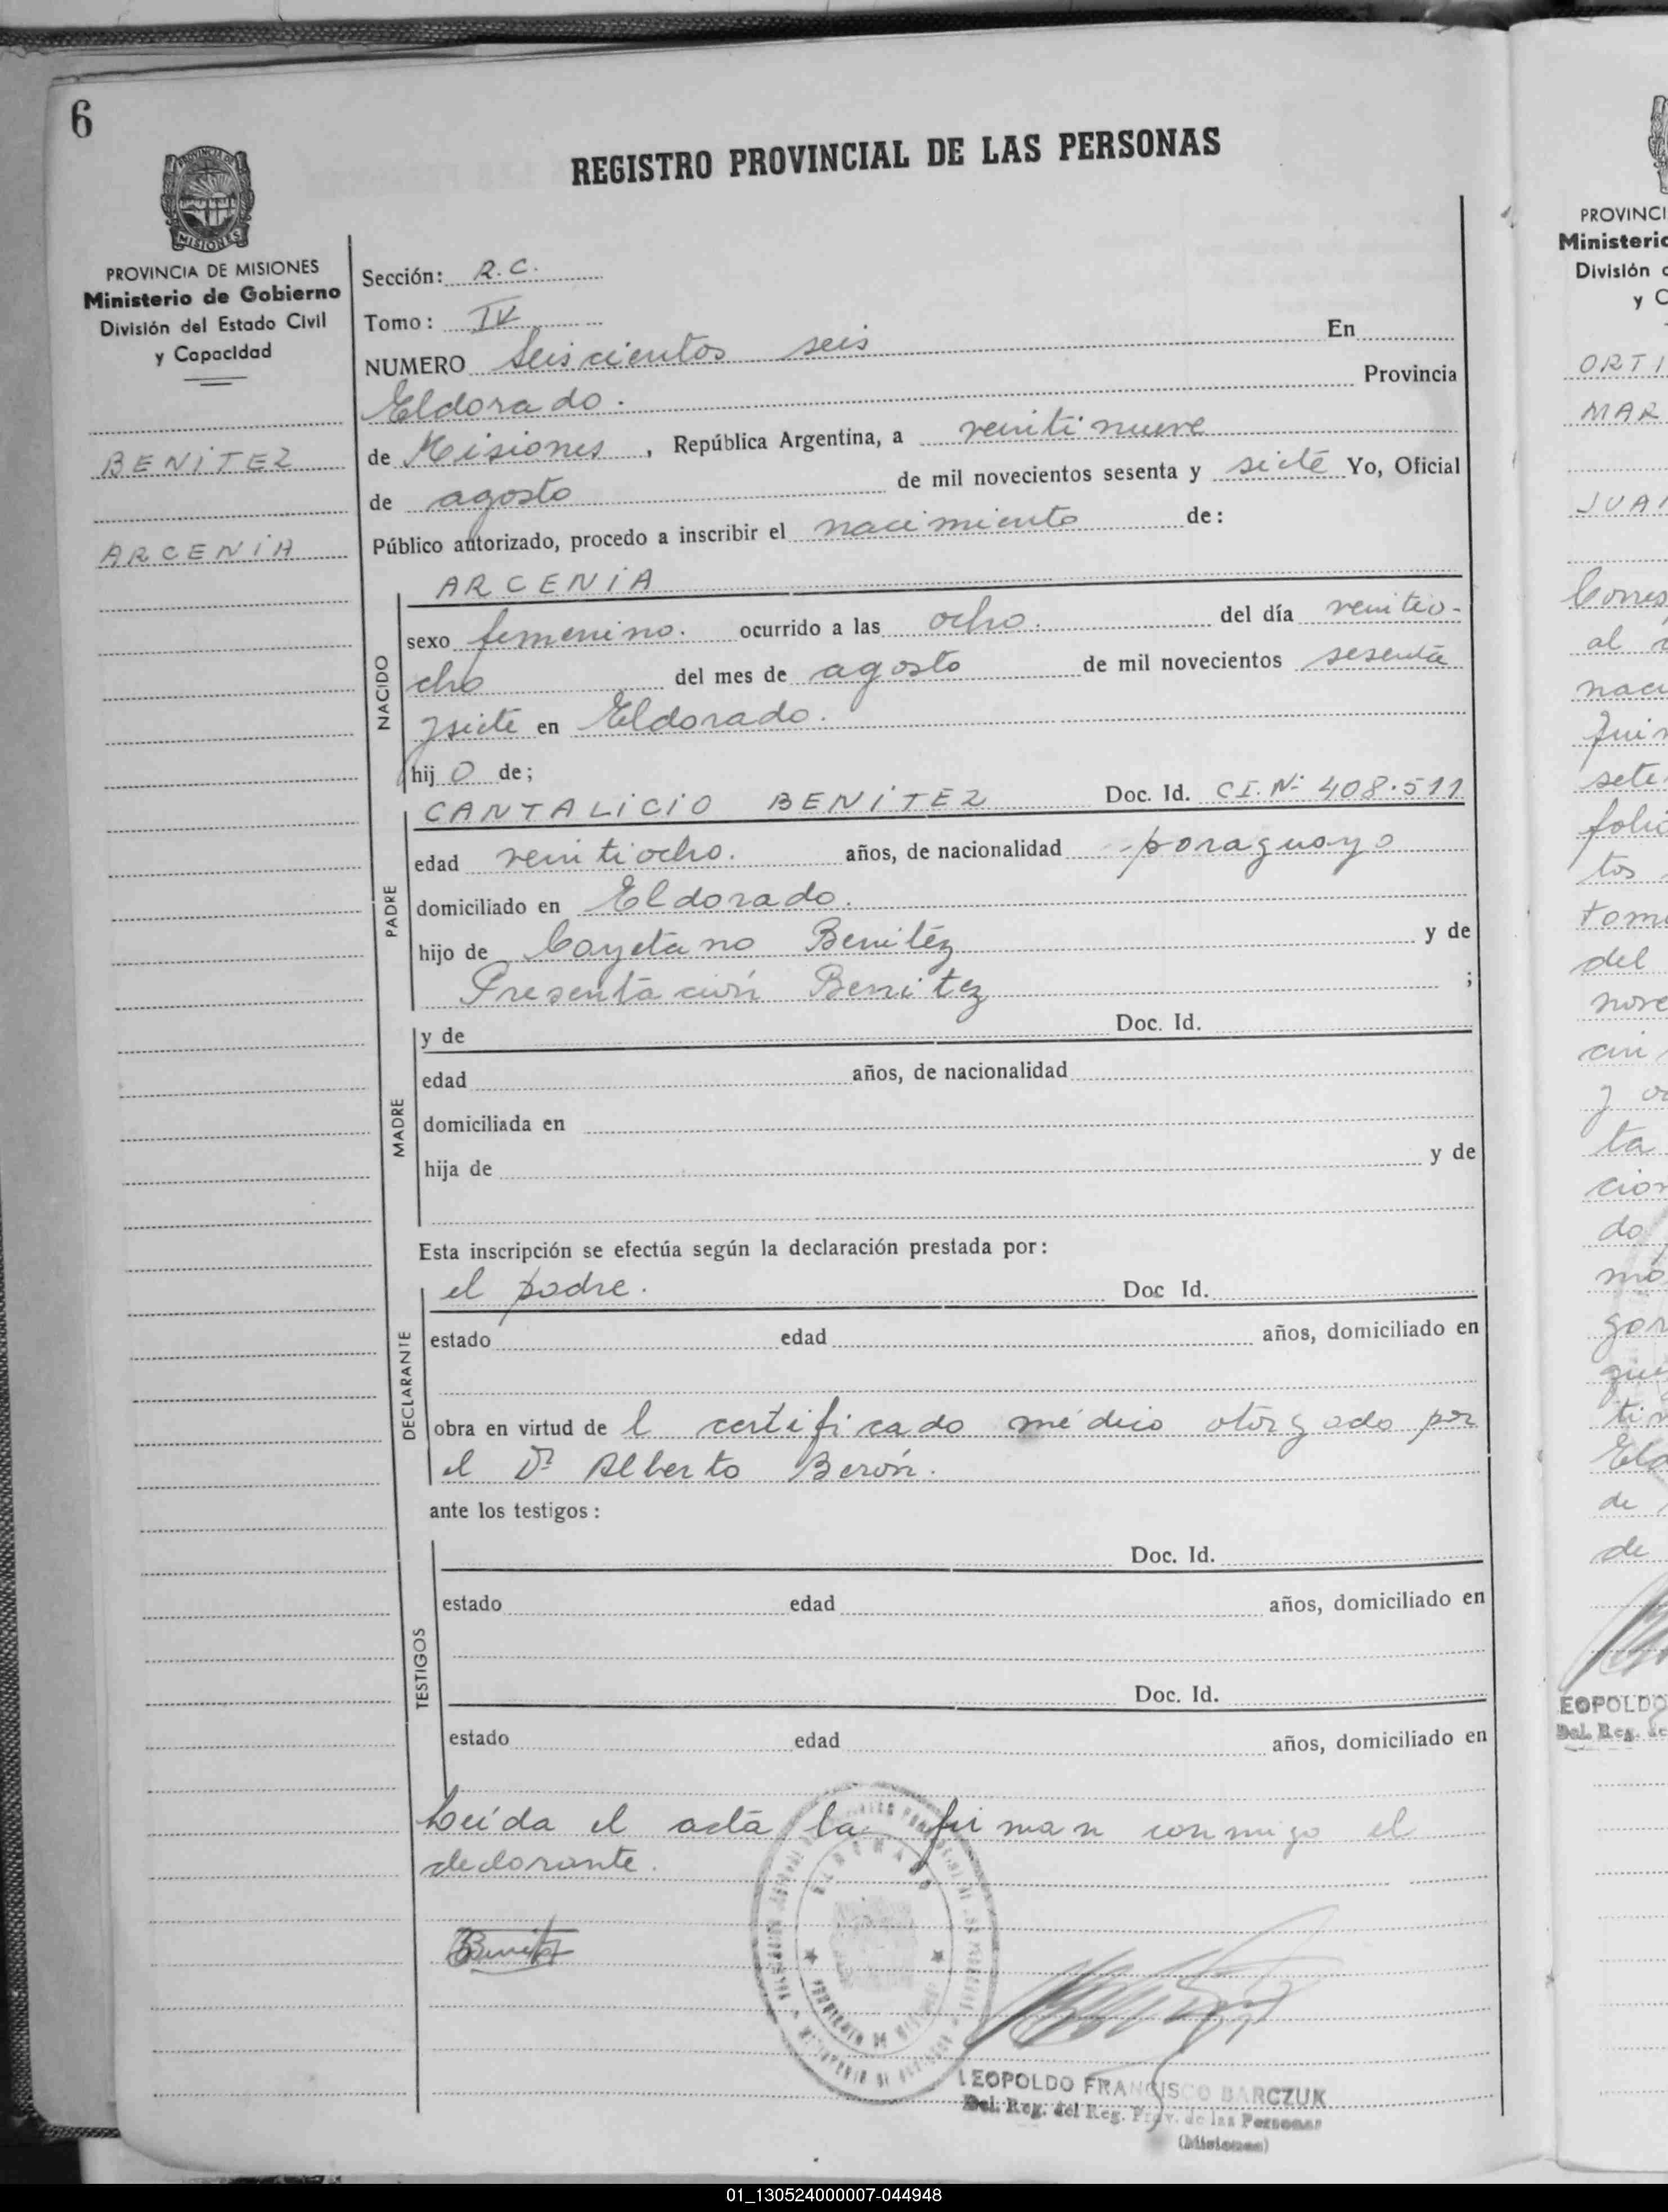 6
REGISTRO PROVINCIAL DE LAS PERSONAS
PROVINCIA DE MISIONES
Ministerio de Gobierno
División del Estado Civil
y Capacidad
BENITEZ
ARCENIA
Sección: R.C.
Tomo: IV
NUMERO Seiscientos seis En
Eldorado. Provincia
de Misiones, República Argentina, a veintinueve
de agosto de mil novecientos sesenta y siete Yo, Oficial
Público autorizado, procedo a inscribir el nacimiento de:
NACIDO
ARCENIA
sexo femenino. ocurrido a las ocho. del día veintio-
cho del mes de agosto de mil novecientos sesenta
y siete en Eldorado.
hijo de;
PADRE
CANTALICIO BENITEZ Doc. Id. C.I. Nº 408.511
edad veintiocho. años, de nacionalidad paraguayo
domiciliado en Eldorado.
hijo de Cayetano Benitez y de
Presentación Benitez ;
MADRE
y de Doc. Id.
edad años, de nacionalidad
domiciliada en
hija de y de
Esta inscripción se efectúa según la declaración prestada por:
DECLARANTE
el padre. Doc Id.
estado edad años, domiciliado en
obra en virtud de l certificado médico otorgado por
el Dr Alberto Berón.
ante los testigos:
TESTIGOS
Doc. Id.
estado edad años, domiciliado en
Doc. Id.
estado edad años, domiciliado en
Leída el acta la firman conmigo el
declarante.
Benitez
ELDORADO
PROVINCIA DE MISIONES
LEOPOLDO FRANCISCO BARCZUK
Del. Reg. del Reg. Prov. de las Personas
(Misiones)
PROVINCI
Ministerio
División d
y C
ORTI
MAR
JUAN
Corres
al
naci
Juin
sete
folio
tos
tomo
del
nove
cin
y oc
ta
cion
do
mo
gon
que
tin
Eld
de
de
EOPOLDO
Del. Reg. de
01_130524000007-044948